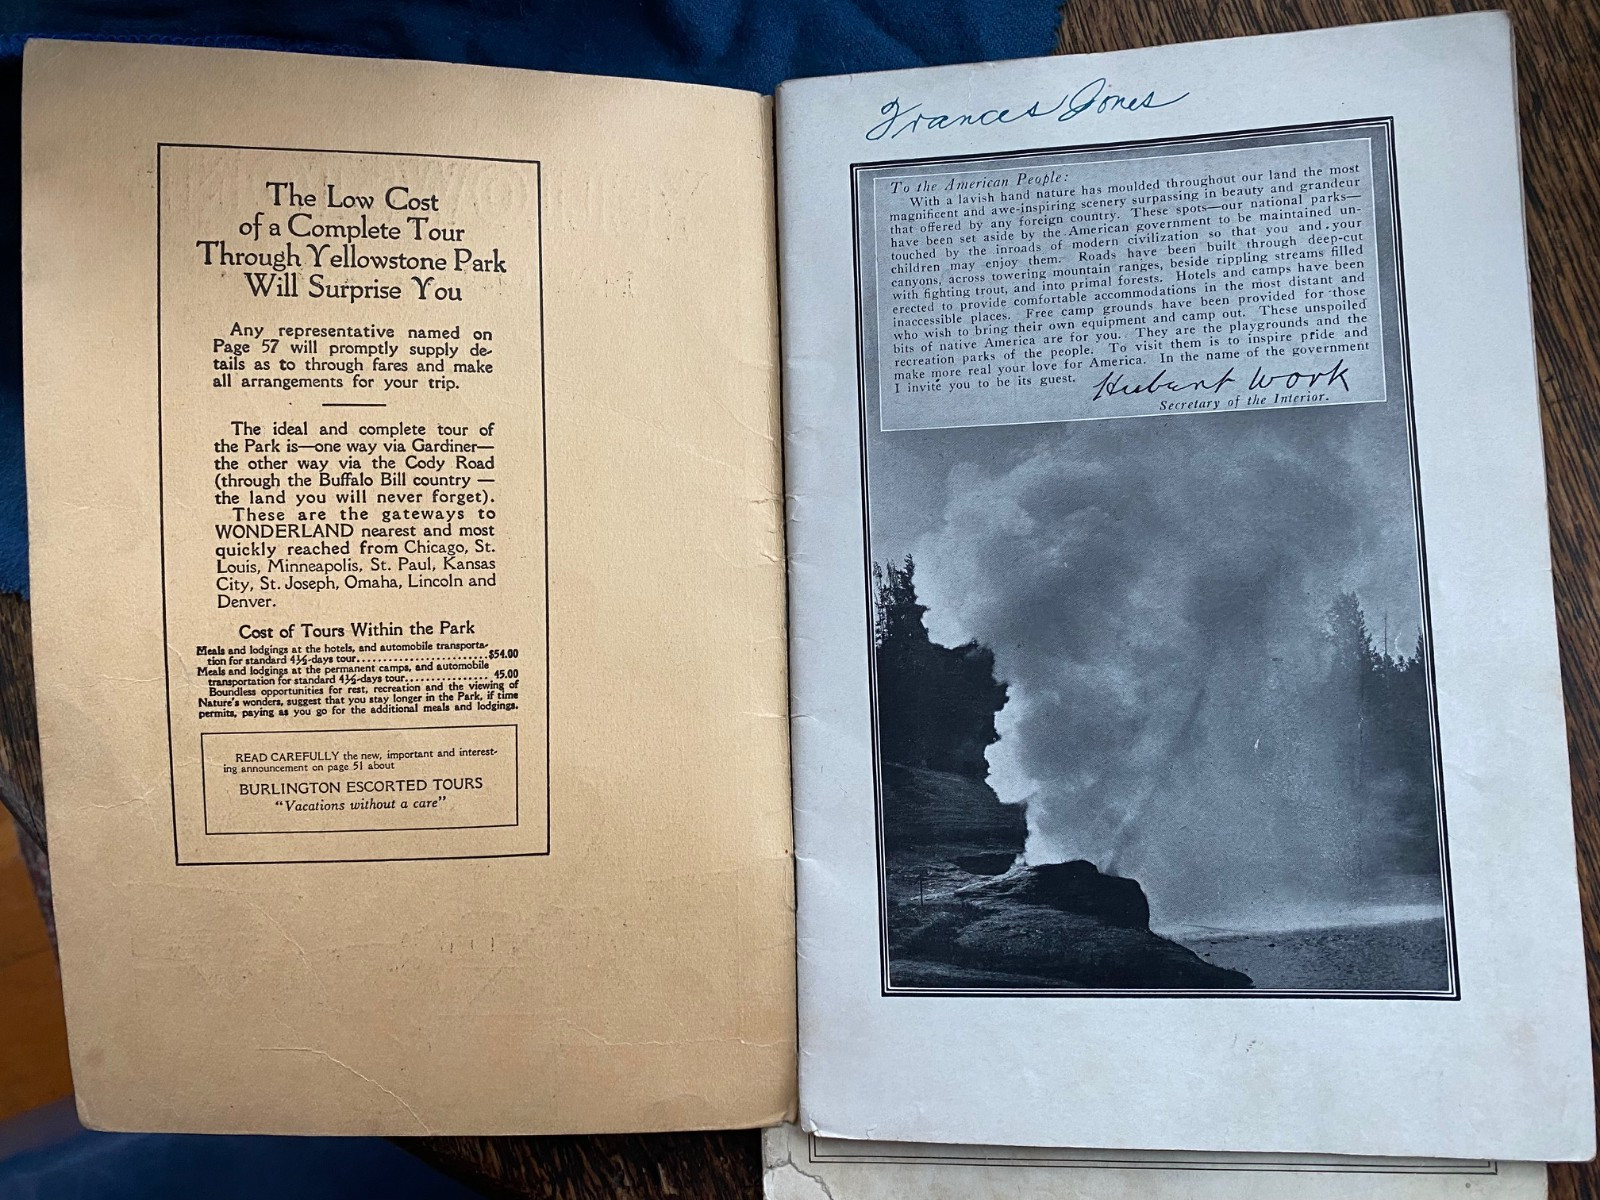 The Low Cost
of a Complete Tour
Through Yellowstone Park
Will Surprise You
Any representative named on
Page 57 will promptly supply de-
tails as to through fares and make
all arrangements for your trip.
The ideal and complete tour of
the Park is—one way via Gardiner—
the other way via the Cody Road
(through the Buffalo Bill country —
the land you will never forget).
These are the gateways to
WONDERLAND nearest and most
quickly reached from Chicago, St.
Louis, Minneapolis, St. Paul, Kansas
City, St. Joseph, Omaha, Lincoln and
Denver.
Cost of Tours Within the Park
Meals and lodgings at the hotels, and automobile transporta-
tion for standard 4½-days tour........................$54.00
Meals and lodgings at the permanent camps, and automobile
transportation for standard 4½-days tour................ 45.00
Boundless opportunities for rest, recreation and the viewing of
Nature's wonders, suggest that you stay longer in the Park, if time
permits, paying as you go for the additional meals and lodgings.
READ CAREFULLY the new, important and interest-
ing announcement on page 51 about
BURLINGTON ESCORTED TOURS
"Vacations without a care"
Frances Jones
To the American People:
With a lavish hand nature has moulded throughout our land the most
magnificent and awe-inspiring scenery surpassing in beauty and grandeur
that offered by any foreign country. These spots—our national parks—
have been set aside by the American government to be maintained un-
touched by the inroads of modern civilization so that you and your
children may enjoy them. Roads have been built through deep-cut
canyons, across towering mountain ranges, beside rippling streams filled
with fighting trout, and into primal forests. Hotels and camps have been
erected to provide comfortable accommodations in the most distant and
inaccessible places. Free camp grounds have been provided for those
who wish to bring their own equipment and camp out. These unspoiled
bits of native America are for you. They are the playgrounds and the
recreation parks of the people. To visit them is to inspire pride and
make more real your love for America. In the name of the government
I invite you to be its guest.
Hubert Work
Secretary of the Interior.